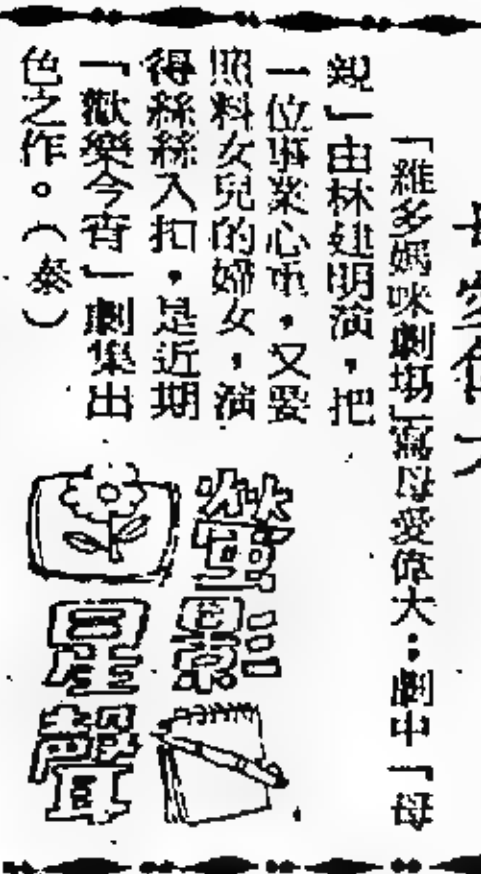 母愛偉大
「維多媽咪劇場」寫母愛偉大:劇中「母
親」由林建明演,把
一位事業心重,又要
照料女兒的婦女,演
得絲絲入扣,是近期
「歡樂今宵」劇集出
色之作。(泰)
螢影
星聲